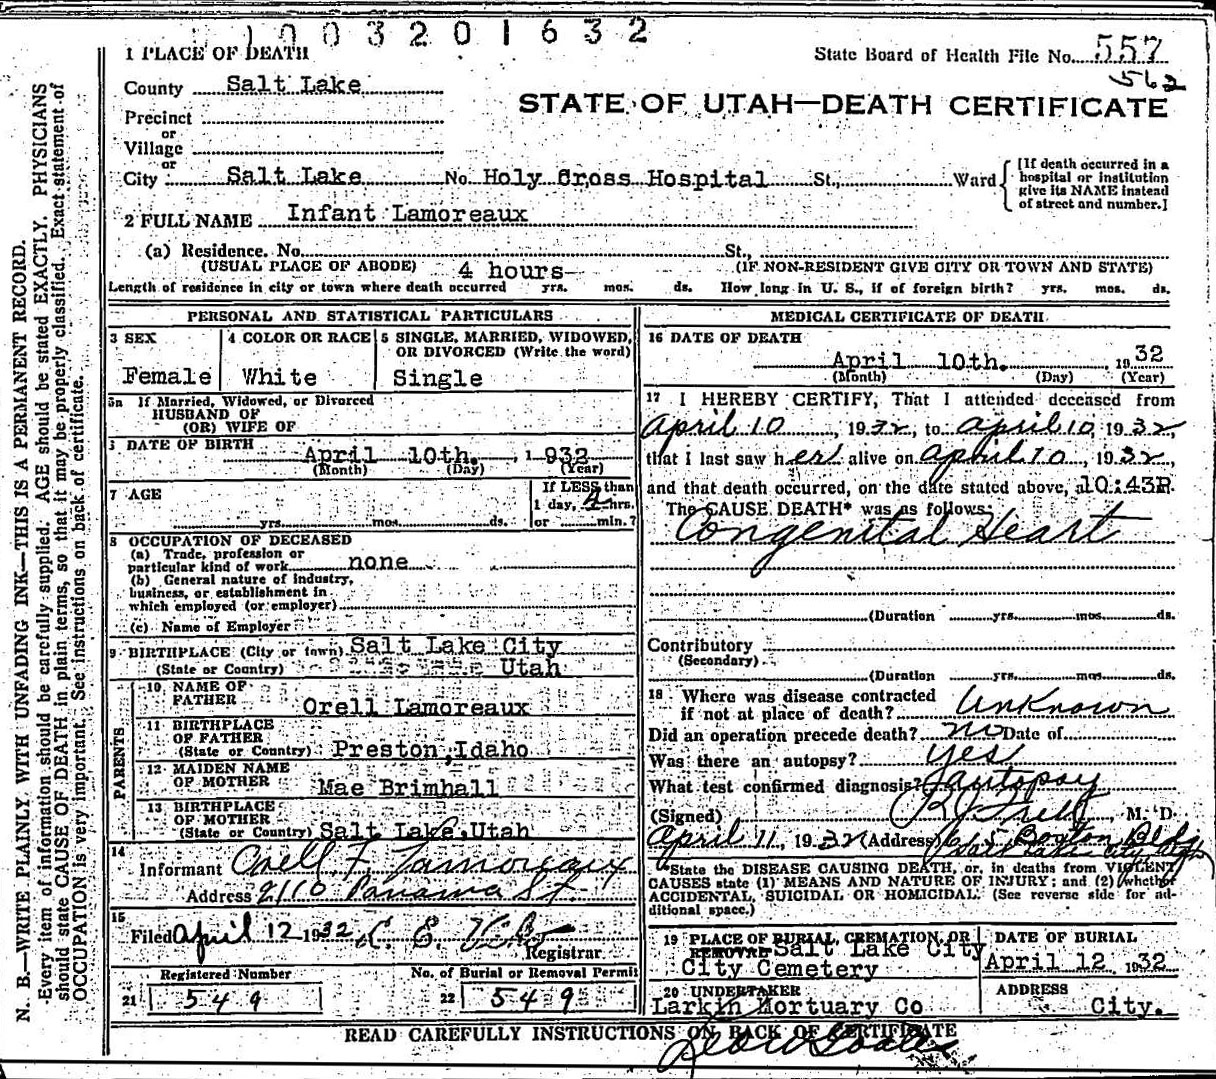 1003201632
1 PLACE OF DEATH
State Board of Health File No. 557
562
County Salt Lake
STATE OF UTAH—DEATH CERTIFICATE
Precinct
or
Village
or
City Salt Lake No. Holy Cross Hospital St., Ward
[If death occurred in a
hospital or institution
give its NAME instead
of street and number.]
2 FULL NAME Infant Lamoreaux
(a) Residence. No. St.,
(USUAL PLACE OF ABODE) (IF NON-RESIDENT GIVE CITY OR TOWN AND STATE)
4 hours
Length of residence in city or town where death occurred yrs. mos. ds. How long in U. S., if of foreign birth? yrs. mos. ds.
PERSONAL AND STATISTICAL PARTICULARS
3 SEX
Female
4 COLOR OR RACE
White
5 SINGLE, MARRIED, WIDOWED,
OR DIVORCED (Write the word)
Single
5a If Married, Widowed, or Divorced
HUSBAND OF
(OR) WIFE OF
DATE OF BIRTH April 10th. , 1932
(Month) (Day) (Year)
7 AGE
yrs. mos. ds.
If LESS than
1 day, 4 hrs.
or min.?
8 OCCUPATION OF DECEASED
(a) Trade, profession or
particular kind of work none
(b) General nature of industry,
business, or establishment in
which employed (or employer)
(c) Name of Employer
9 BIRTHPLACE (City or town) Salt Lake City
(State or Country) Utah
PARENTS
10 NAME OF
FATHER Orell Lamoreaux
11 BIRTHPLACE
OF FATHER
(State or Country) Preston, Idaho
12 MAIDEN NAME
OF MOTHER Mae Brimhall
13 BIRTHPLACE
OF MOTHER
(State or Country) Salt Lake, Utah
14
Informant Orell F Lamoreaux
Address 2110 Panama St.
15
Filed April 12 1932
Registrar
Registered Number
21 549
No. of Burial or Removal Permit
22 549
MEDICAL CERTIFICATE OF DEATH
16 DATE OF DEATH
April 10th. 1932
(Month) (Day) (Year)
17 I HEREBY CERTIFY, That I attended deceased from
April 10, 1932, to April 10 1932,
that I last saw her alive on April 10, 1932,
and that death occurred, on the date stated above, at 10:43P.
The CAUSE DEATH* was as follows:
Congenital Heart
(Duration yrs. mos. ds.
Contributory
(Secondary)
(Duration yrs. mos. ds.
18 Where was disease contracted
if not at place of death? Unknown
Did an operation precede death? no Date of
Was there an autopsy? yes
What test confirmed diagnosis? autopsy
(Signed) , M. D.
April 11, 1932 (Address) 615 Boston Bldg
Salt Lake City
*State the DISEASE CAUSING DEATH, or, in deaths from VIOLENT
CAUSES state (1) MEANS AND NATURE OF INJURY; and (2) whether
ACCIDENTAL, SUICIDAL OR HOMICIDAL. (See reverse side for ad-
ditional space.)
19 PLACE OF BURIAL, CREMATION, OR
REMOVAL Salt Lake City
City Cemetery
DATE OF BURIAL
April 12 1932
20 UNDERTAKER
Larkin Mortuary Co
ADDRESS
City.
READ CAREFULLY INSTRUCTIONS ON BACK OF CERTIFICATE
N. B.—WRITE PLAINLY WITH UNFADING INK—THIS IS A PERMANENT RECORD.
Every item of information should be carefully supplied. AGE should be stated EXACTLY. PHYSICIANS
should state CAUSE OF DEATH in plain terms, so that it may be properly classified. Exact statement of
OCCUPATION is very important. See instructions on back of certificate.